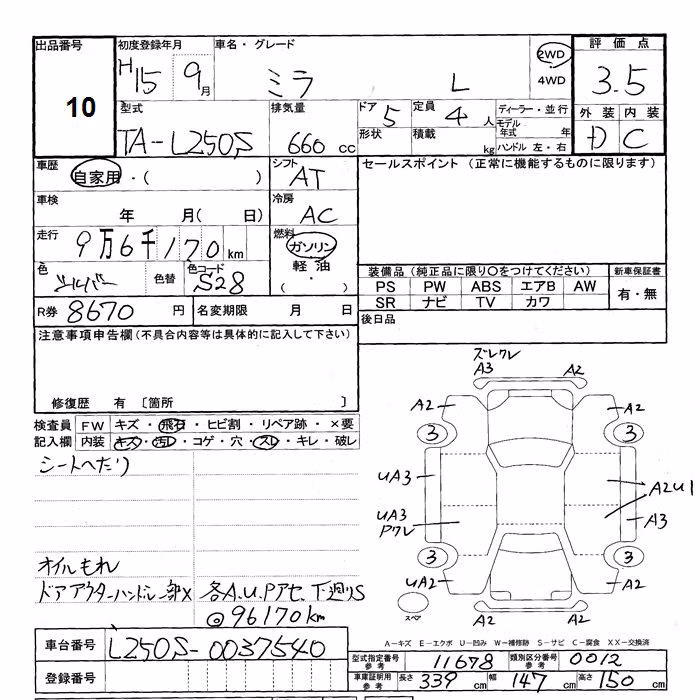 出品番号
10
初度登録年月
H15 9月
車名・グレード
ミラ L
2WD
4WD
評価点
3.5
型式
TA-L250S
排気量
660 cc
ドア 5
形状
定員 4 人
積載 kg
ディーラー・並行
モデル年式 年
ハンドル 左・右
外装 内装
D C
車歴
自家用・( )
シフト
AT
セールスポイント (正常に機能するものに限ります)
車検
年 月( 日)
冷房
AC
走行
9万6千170km
燃料
ガソリン
軽油
( ・ )
色
シルバー
色替
色コード
S28
装備品(純正品に限り○をつけてください)
新車保証書
PS PW ABS エアB AW
SR ナビ TV カワ
有・無
R券 8670 円
名変期限 月 日
後日品
注意事項申告欄(不具合内容等は具体的に記入して下さい)
修復歴 有 [箇所 ]
検査員
記入欄
FW キズ・飛石・ヒビ割・リペア跡・×要
内装 キズ・汚レ・コゲ・穴・スレ・キレ・破レ
シートへたり
オイルもれ
ドアアウターハンドル一部X 各A.U.Pアセ、下廻りS
@96170km
ズレワレ
A3 A2
A2 A2
3 3
UA3
A2U1
UA3
Pワレ
A3
3 3
UA2 A2
スペア
A2 A2
A-キズ E-エクボ U-凹み W-補修跡 S-サビ C-腐食 XX-交換済
車台番号 L250S-0037540
登録番号
型式指定番号
参考
11678
類別区分番号
参考
0012
車庫証明用
参考
長さ 339 cm 幅 147 cm 高さ 150 cm